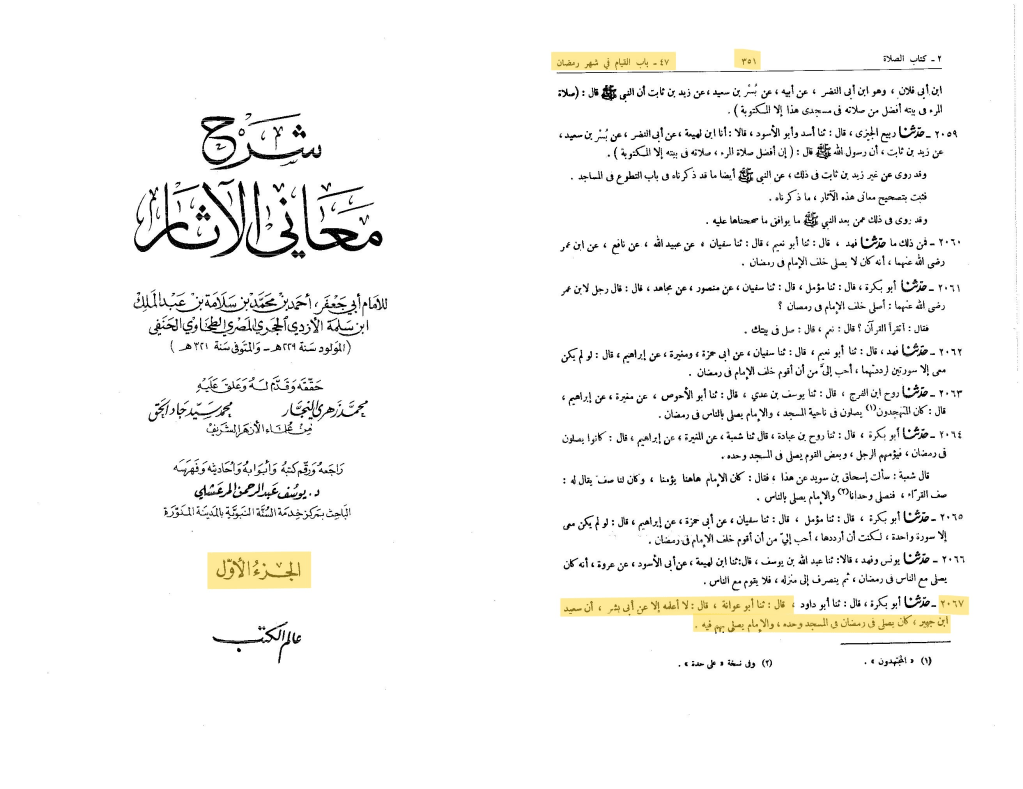 شرح
معاني الآثار
للإمام أبي جعفر، أحمد بن محمد بن سلامة بن عبد الملك
ابن سلمة الأزدي الحجري المصري الطحاوي الحنفي
(المولود سنة ٢٢٩ هـ - والمتوفى سنة ٣٢١ هـ)
حققه وقدم له وعلق عليه
محمد زهري النجار محمد سيد جاد الحق
من علماء الأزهر الشريف
راجعه ورقم كتبه وأبوابه وأحاديثه وفهرسه
د. يوسف عبد الرحمن المرعشلي
الباحث بمركز خدمة السنة النبوية بالمدينة المنورة
الجزء الأول
عالم الكتب
٢ - كتاب الصلاة ٣٥١ ٤٧ - باب القيام في شهر رمضان
ابن أبى فلان ، وهو ابن أبى النضر ، عن أبيه ، عن بُسْر بن سعيد ، عن زيد بن ثابت أن النبي ﷺ قال : (صلاة
المرء فى بيته أفضل من صلاته فى مسجدى هذا إلا المكتوبة ) .
٢٠٥٩ - حدثنا ربيع الجيزى ، قال : ثنا أسد وأبو الأسود ، قالا : أنا ابن لهيعة ، عن أبى النضر ، عن بُسْر بن سعيد ،
عن زيد بن ثابت ، أن رسول الله ﷺ قال : ( إن أفضل صلاة المرء ، صلاته فى بيته إلا المكتوبة ) .
وقد روى عن غير زيد بن ثابت فى ذلك ، عن النبي ﷺ أيضا ما قد ذكرناه فى باب التطوع فى المساجد .
فثبت بتصحيح معانى هذه الآثار ، ما ذكرناه .
وقد روى فى ذلك عمن بعد النبي ﷺ ما يوافق ما صححناها عليه .
٢٠٦٠ - فمن ذلك ما حدثنا فهد ، قال : ثنا أبو نعيم ، قال : ثنا سفيان ، عن عبيد الله ، عن نافع ، عن ابن عمر
رضى الله عنهما ، أنه كان لا يصلى خلف الإمام فى رمضان .
٢٠٦١ - حدثنا أبو بكرة ، قال : ثنا مؤمل ، قال : ثنا سفيان ، عن منصور ، عن مجاهد ، قال : قال رجل لابن عمر
رضى الله عنهما : أصلى خلف الإمام فى رمضان ؟
فقال : أتقرأ القرآن ؟ قال : نعم ، قال : صل فى بيتك .
٢٠٦٢ - حدثنا فهد ، قال : ثنا أبو نعيم ، قال : ثنا سفيان ، عن ابى حمزة ، ومغيرة ، عن إبراهيم ، قال : لو لم يكن
معى إلا سورتين لرددتهما ، أحب إلىَّ من أن أقوم خلف الإمام فى رمضان .
٢٠٦٣ - حدثنا روح ابن الفرج ، قال : ثنا يوسف بن عدي ، قال : ثنا أبو الأحوص ، عن مغيرة ، عن إبراهيم ،
قال : كان المتهجدون(١) يصلون فى ناحية المسجد ، والإمام يصلى بالناس فى رمضان .
٢٠٦٤ - حدثنا أبو بكرة ، قال : ثنا روح بن عبادة ، قال ثنا شعبة ، عن المغيرة ، عن إبراهيم ، قال : كانوا يصلون
فى رمضان ، فيؤمهم الرجل ، وبعض القوم يصلى فى المسجد وحده .
قال شعبة : سألت إسحاق بن سويد عن هذا ، فقال : كان الإمام هاهنا يؤمنا ، وكان لنا صف يقال له :
صف القراء ، فنصلى وحدانا(٢) والإمام يصلى بالناس .
٢٠٦٥ - حدثنا أبو بكرة ، قال : ثنا مؤمل ، قال : ثنا سفيان ، عن أبى حمزة ، عن إبراهيم ، قال : لو لم يكن معى
إلا سورة واحدة ، لكنت أن أرددها ، أحب إليّ من أن أقوم خلف الإمام فى رمضان .
٢٠٦٦ - حدثنا يونس وفهد ، قالا: ثنا عبد الله بن يوسف ، قال:ثنا ابن لهيعة ، عن أبى الأسود ، عن عروة ، أنه كان
يصلى مع الناس فى رمضان ، ثم ينصرف إلى منزله ، فلا يقوم مع الناس .
٢٠٦٧ - حدثنا أبو بكرة ، قال : ثنا أبو داود ، قال : ثنا أبو عوانة ، قال : لا أعلمه إلا عن أبى بشر ، أن سعيد
ابن جبير ، كان يصلى فى رمضان فى المسجد وحده ، والإمام يصلى بهم فيه .
(١) « المجتهدون » . (٢) وفى نسخة « على حدة » .